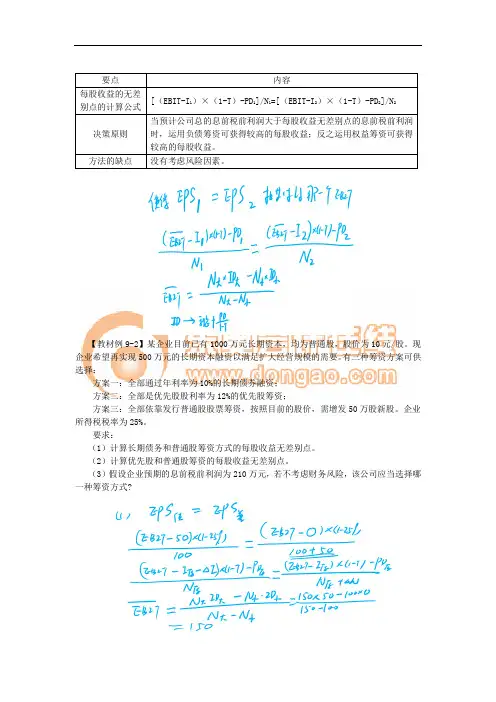 要点 内容
每股收益的无差别点的计算公式 [（EBIT-I₁）×（1-T）-PD₁]/N₁=[（EBIT-I₂）×（1-T）-PD₂]/N₂
决策原则 当预计公司总的息前税前利润大于每股收益无差别点的息前税前利润时，运用负债筹资可获得较高的每股收益；反之运用权益筹资可获得较高的每股收益。
方法的缺点 没有考虑风险因素。
EPS₁ = EPS₂
(EBIT-I₁)×(1-T)-PD₁ / N₁ = (EBIT-I₂)×(1-T)-PD₂ / N₂
www.dongao.com
【教材例9-2】某企业目前已有1000万元长期资本，均为普通股，股价为10元/股。现
企业希望再实现500万元的长期资本融资以满足扩大经营规模的需要。有三种筹资方案可供
选择：
方案一：全部通过年利率为10%的长期债券融资；
方案二：全部是优先股股利率为12%的优先股筹资；
方案三：全部依靠发行普通股股票筹资，按照目前的股价，需增发50万股新股。企业
所得税税率为25%。
要求：
（1）计算长期债务和普通股筹资方式的每股收益无差别点。
（2）计算优先股和普通股筹资的每股收益无差别点。
（3）假设企业预期的息前税前利润为210万元，若不考虑财务风险，该公司应当选择哪
一种筹资方式?
(EBIT-50)×(1-25%) / 100 = (EBIT-0)×(1-25%) / 100+50
= 150